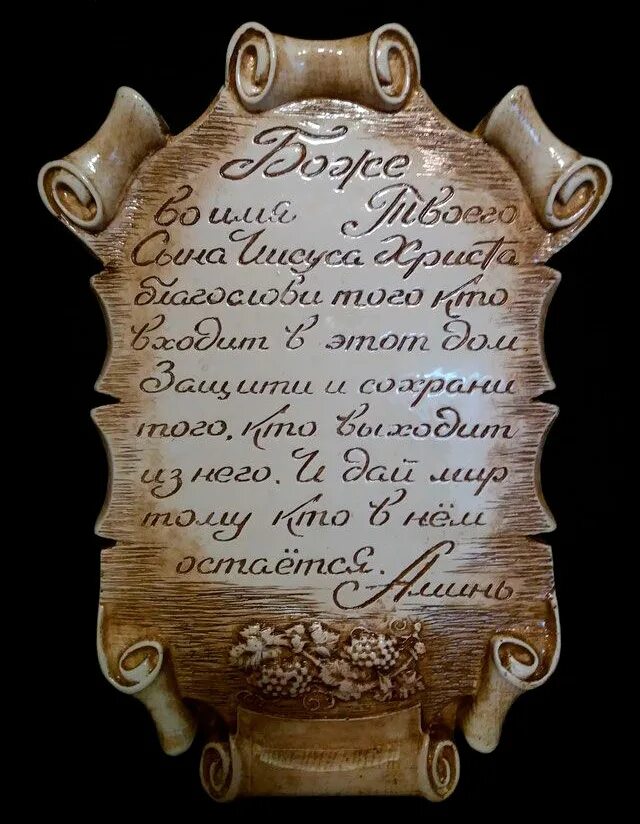 Боже
во имя Твоего
Сына Иисуса Христа
благослови того кто
входит в этот дом
Защити и сохрани
того, кто выходит
из него. И дай мир
тому кто в нём
остаётся.
Аминь